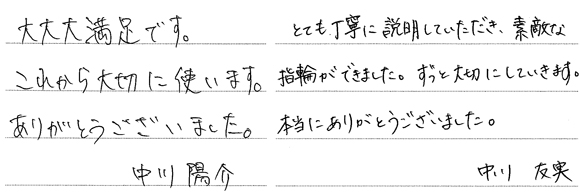 大大大満足です。
これから大切に使います。
ありがとうございました。
中川 陽介
とても丁寧に説明していただき、素敵な
指輪ができました。ずっと大切にしていきます。
本当にありがとうございました。
中川 友実